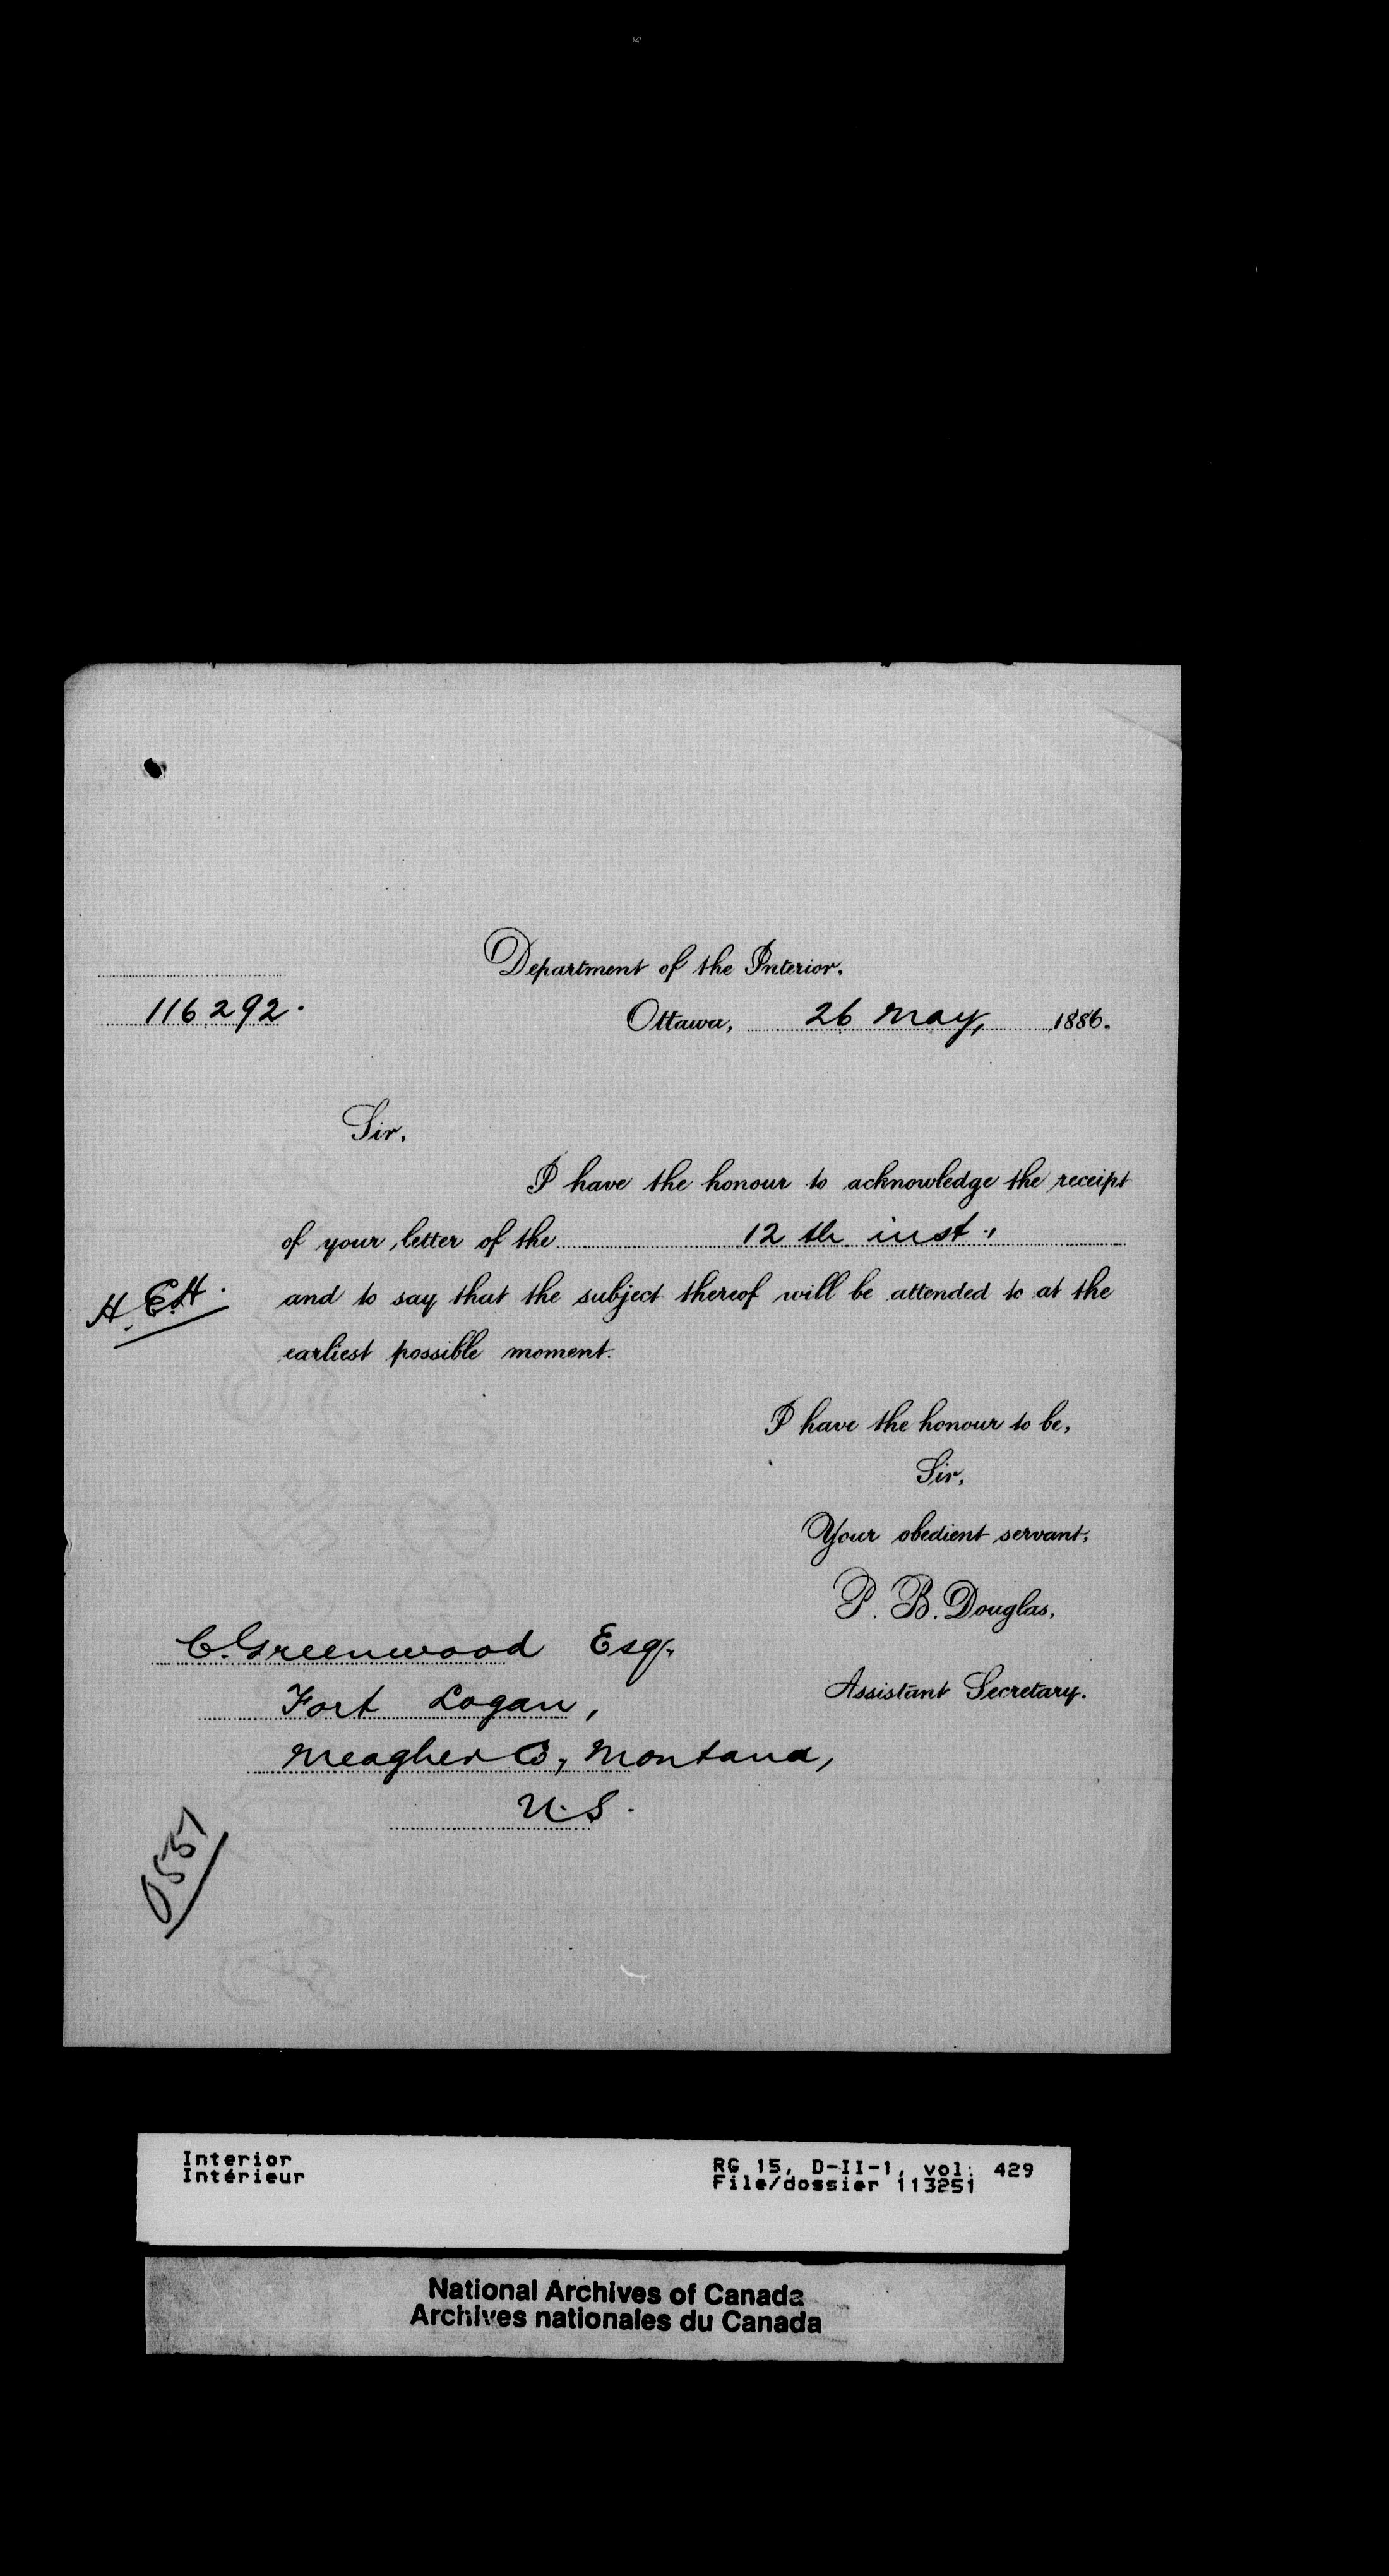 Department of the Interior,
116292.
Ottawa, 26 May, 1886.
Sir,
I have the honour to acknowledge the receipt
of your letter of the 12th inst.,
H.E.H.
and to say that the subject thereof will be attended to at the
earliest possible moment.
I have the honour to be,
Sir,
Your obedient servant,
P. B. Douglas,
Assistant Secretary.
C. Greenwood Esq.,
Fort Logan,
Meagher Co, Montana,
U.S.
Interior
Intérieur
RG 15, D-II-1, vol. 429
File/dossier 113251
National Archives of Canada
Archives nationales du Canada